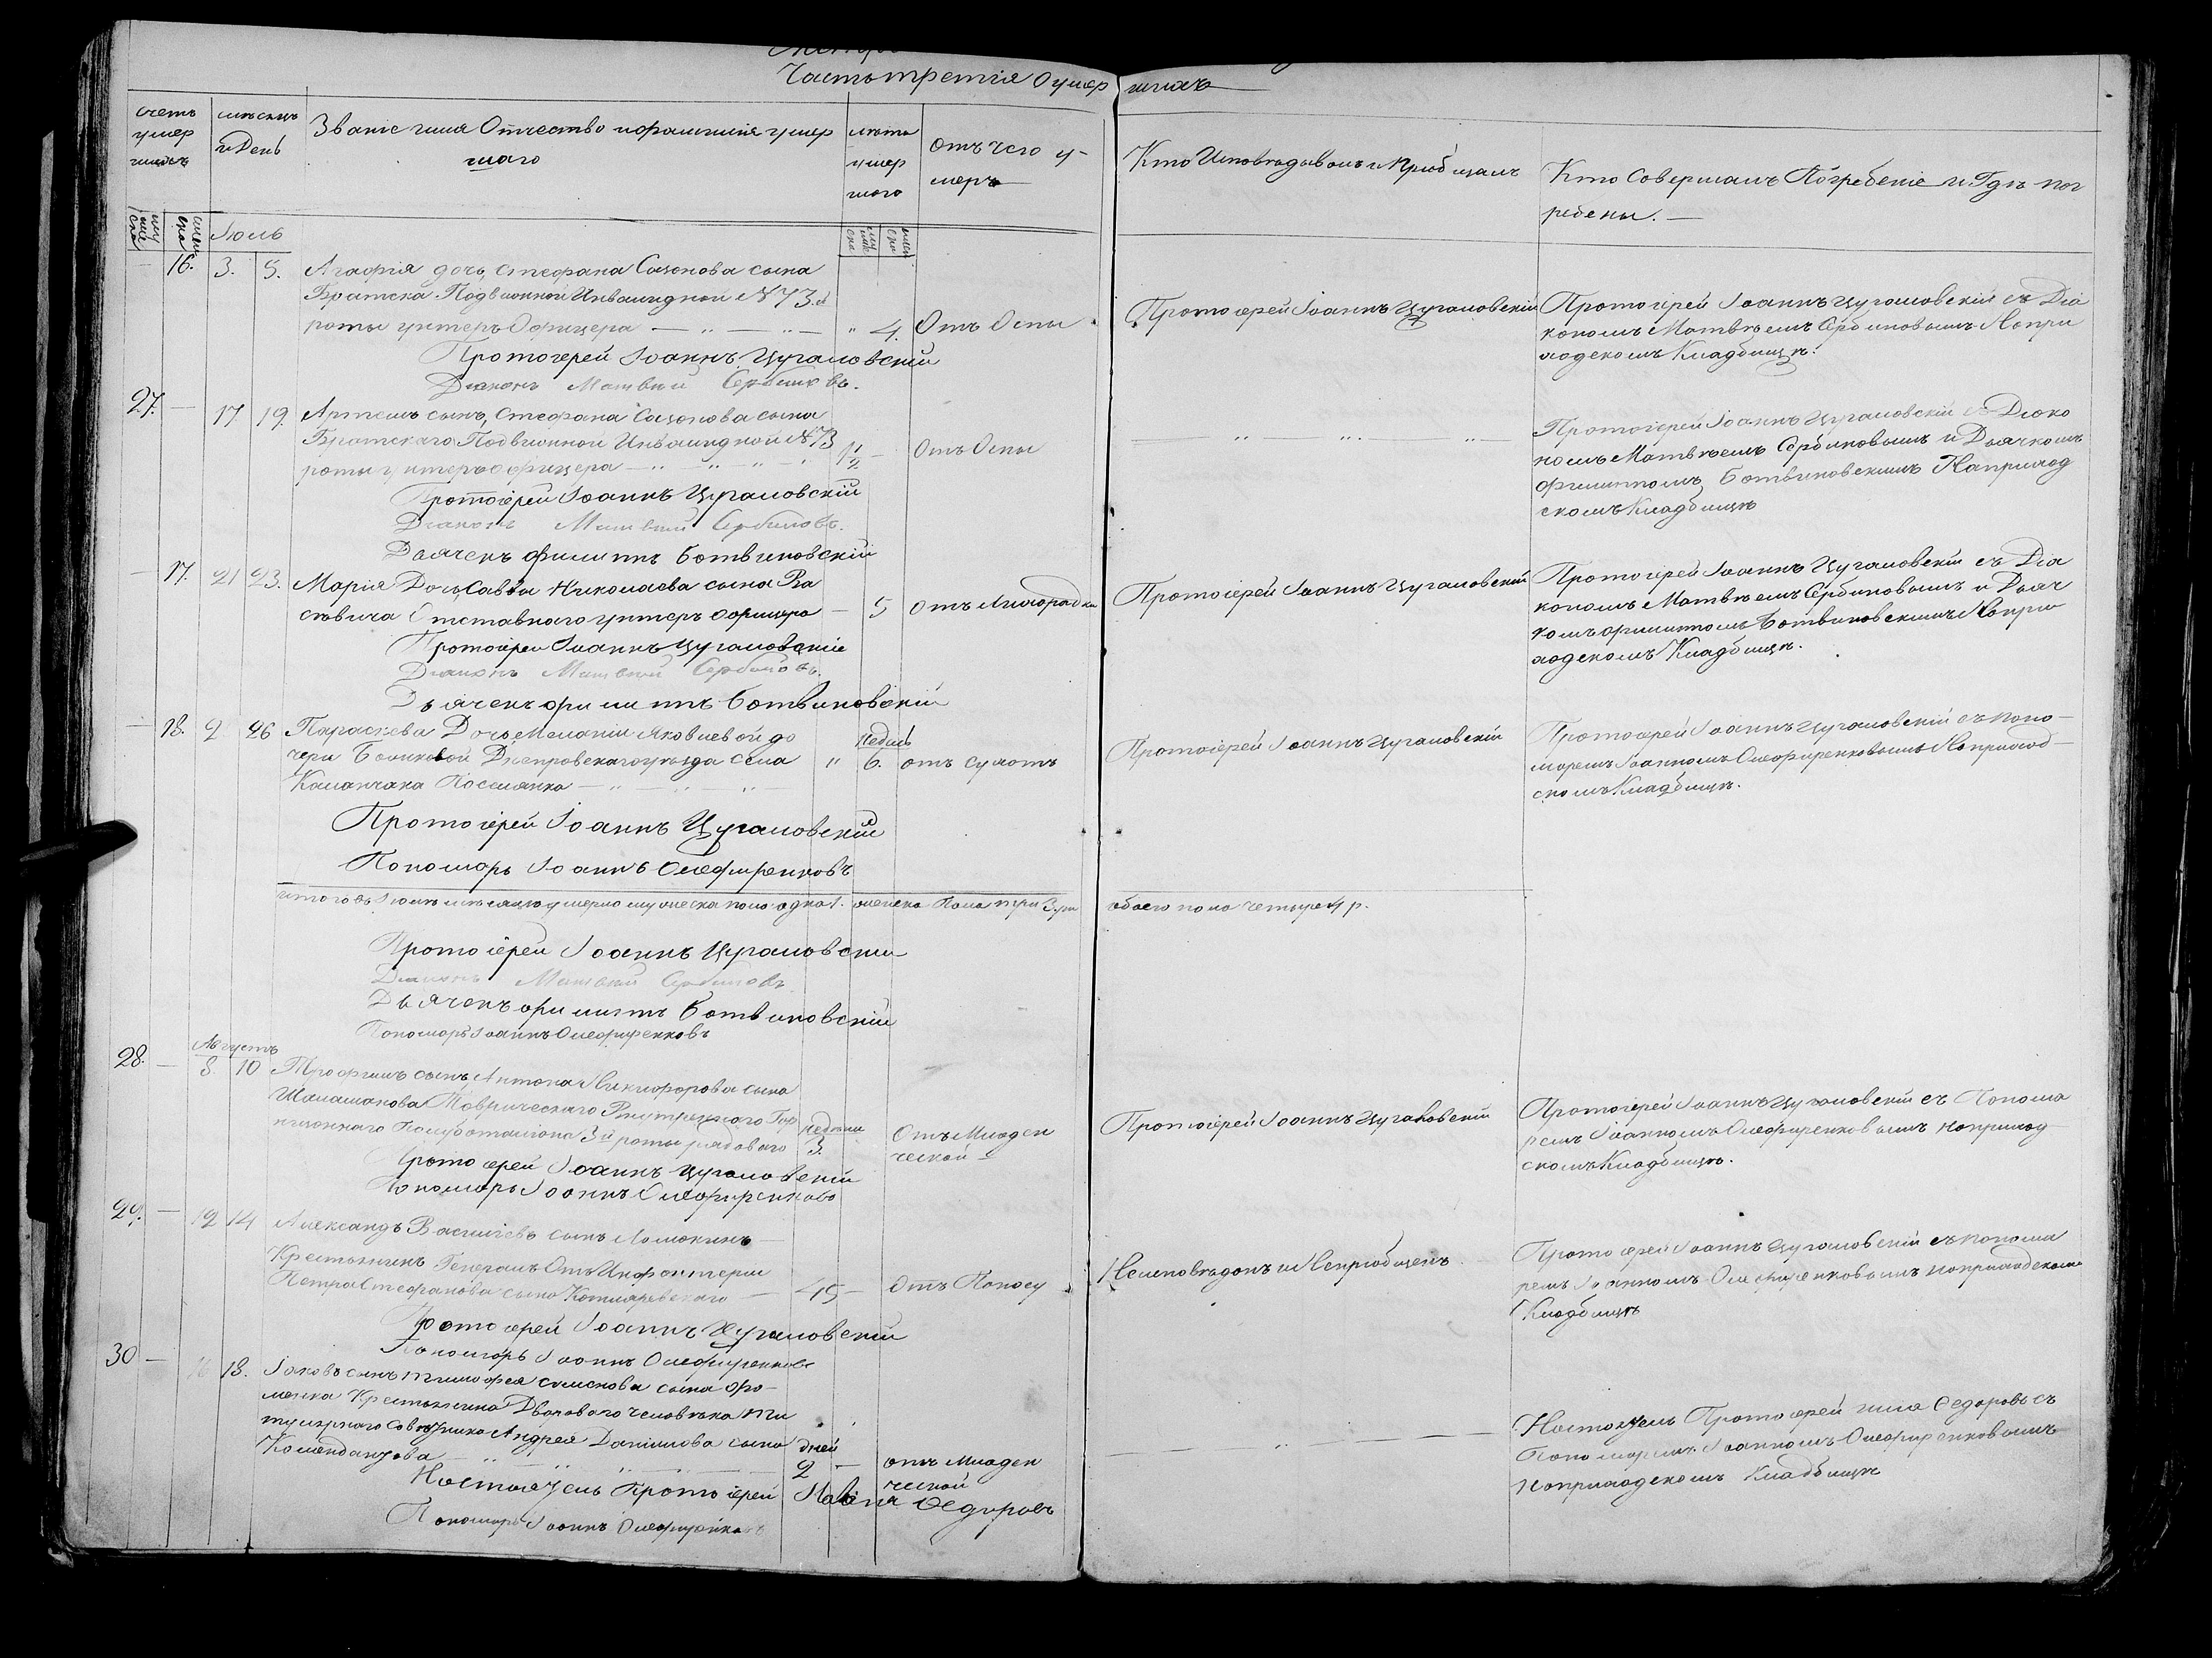 Часть третія О умер шихъ
счетъ умер шихъ
мѣсяцъ и День
Званіе имя Отчество и фамилія умер шаго
лѣта умер шаго
отъ чего у- меръ
Кто Исповѣдывалъ и Приобщалъ
Кто Совершалъ Погребеніе и Гдѣ пог ребены.
Іюль
16. 3. 5. Агафія дочь, Стефана Сазонова сына
Братска Подвижной Инвалидной №73.й
роты унтеръ Офицера 4. Отъ Оспы
Протоіерей Іоаннъ Цугаловскій
Діаконъ Матвѣй Сербиновъ.
Протоіерей Іоаннъ Цугаловскій
Протоіерей Іоаннъ Цугаловскій съ Діа
кономъ Матвѣемъ Сербиновымъ На при
ходскомъ Кладбищѣ.
27. 17 19. Артемъ сынъ, Стефана Сазонова сына
Братскаго Подвижной Инвалидной №73
роты унтеръ офицера 1 1/2 Отъ Оспы
Протоіерей Іоаннъ Цугаловскій
Діаконъ Матвѣй Сербиновъ.
Дьячекъ Филиппъ Ботвиновскій
Протоіерей Іоаннъ Цугаловскій съ Діако
номъ Матвѣемъ Сербиновымъ и Дьячкомъ
Филиппомъ Ботвиновскимъ На приход
скомъ Кладбищѣ
17. 21 23. Марія Дочь, Саввы Николаева сына
Отставного унтеръ офицера 5 отъ Лихорадки
Протоіерей Іоаннъ Цугаловскій
Діаконъ Матвѣй Сербиновъ.
Дьячекъ Филиппъ Ботвиновскій
Протоіерей Іоаннъ Цугаловскій
Протоіерей Іоаннъ Цугаловскій съ Діа
кономъ Матвѣемъ Сербиновымъ и Дьяч
комъ Филиппомъ Ботвиновскимъ На при
ходскомъ Кладбищѣ.
18. 2 26 Параскева Дочь Меланіи Яковлевой до
чери Днепровскаго уѣзда села
Каланчака Поселянка 6. отъ сухотъ
Протоіерей Іоаннъ Цугаловскій
Пономарь Іоаннъ Олефиренковъ
Протоіерей Іоаннъ Цугаловскій
Протоіерей Іоаннъ Цугаловскій съ Поно-
маремъ Іоанномъ Олефиренковымъ На приход-
скомъ Кладбищѣ.
итого въ Іюлѣ мѣсяцѣ умерло мужеска пола одна 1. женска Пола три 3 обоего пола четыре 4
Протоіерей Іоаннъ Цугаловскій
Діаконъ Матвѣй Сербиновъ
Дьячекъ Филиппъ Ботвиновскій
Пономарь Іоаннъ Олефиренковъ
Августъ
28. 8. 10 Трофимъ сынъ, Антона Никифорова сына
Шалашакова Таврическаго Внутренняго Гар
низоннаго Полубаталіона 3й роты рядоваго
недели 3. Отъ Младен ческой
Протоіерей Іоаннъ Цугаловскій
Пономарь Іоаннъ Олефиренковъ
Протоіерей Іоаннъ Цугаловскій
Протоіерей Іоаннъ Цугаловскій съ Понома
ремъ Іоанномъ Олефиренковымъ на приход
скомъ Кладбищѣ.
29. 12 14 Александъ Васильевъ сынъ
Крестьянинъ Генералъ Отъ Инфантеріи
Петра Стефанова сына Котляревскаго 45 Отъ Поносу
Протоіерей Іоаннъ Цугаловскій
Пономарь Іоаннъ Олефиренковъ
Неисповѣданъ и Неприобщенъ
Протоіерей Іоаннъ Цугаловскій съ Понома
ремъ Іоанномъ Олефиренковымъ на приходскомъ
Кладбищѣ
30 18. Іаковъ сынъ Тимофея сына Фо-
менка Крестьянина Двороваго человѣка Ти
тулярнаго Совѣтника Андрея Данилова сына
Комендантова дней 2 отъ Младен ческой
Настоятель Протоіерей Федоровъ
Пономарь Іоаннъ Олефиренковъ
Настоятель Протоіерей Федоровъ съ
Пономаремъ Іоанномъ Олефиренковымъ
на приходскомъ Кладбищѣ